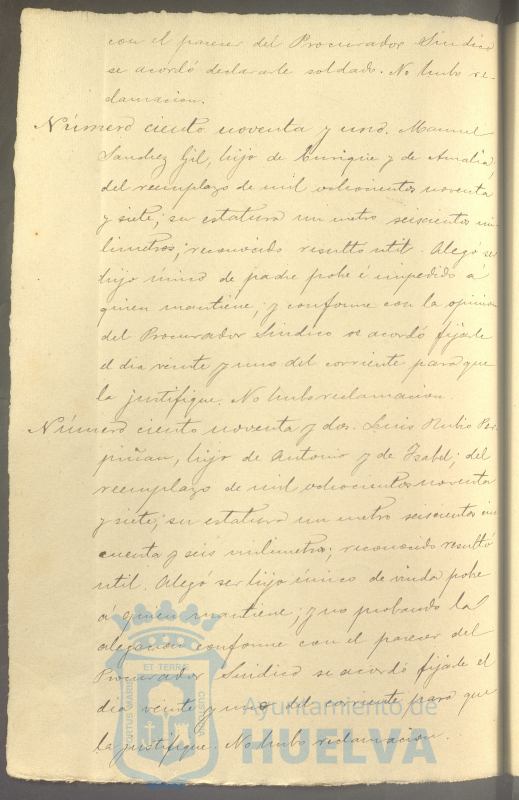 con el parecer del Procurador Sindico
se acordó declararle soldado. No hubo re-
clamacion.
Número ciento noventa y uno. Manuel
Sanchez Gil, hijo de Enrique y de Amalia,
del reemplazo de mil ochocientos noventa
y siete; su estatura un metro seiscientos mi-
limetros; reconocido resultó util. Alegó ser
hijo único de padre pobre é impedido a
quien mantiene; y conforme con la opinion
del Procurador Sindico se acordó fijarle
el dia veinte y uno del corriente para que
la justifique. No hubo reclamacion
Número ciento noventa y dos. Luis Rubio Per-
piñan, hijo de Antonio y de Isabel; del
reemplazo de mil ochocientos noventa
y siete; su estatura un metro seiscientos cin
cuenta y seis milimetros; reconocido resultó
util. Alegó ser hijo único de viuda pobre
á quien mantiene; y no probando la
alegacion conforme con el parecer del
Procurador Sindico se acordó fijarle el
dia veinte y uno del corriente para que
la justifique. No hubo reclamacion.
ET TERRÆ
PORTUS MARIS
CUSTODIA
Ayuntamiento de
HUELVA